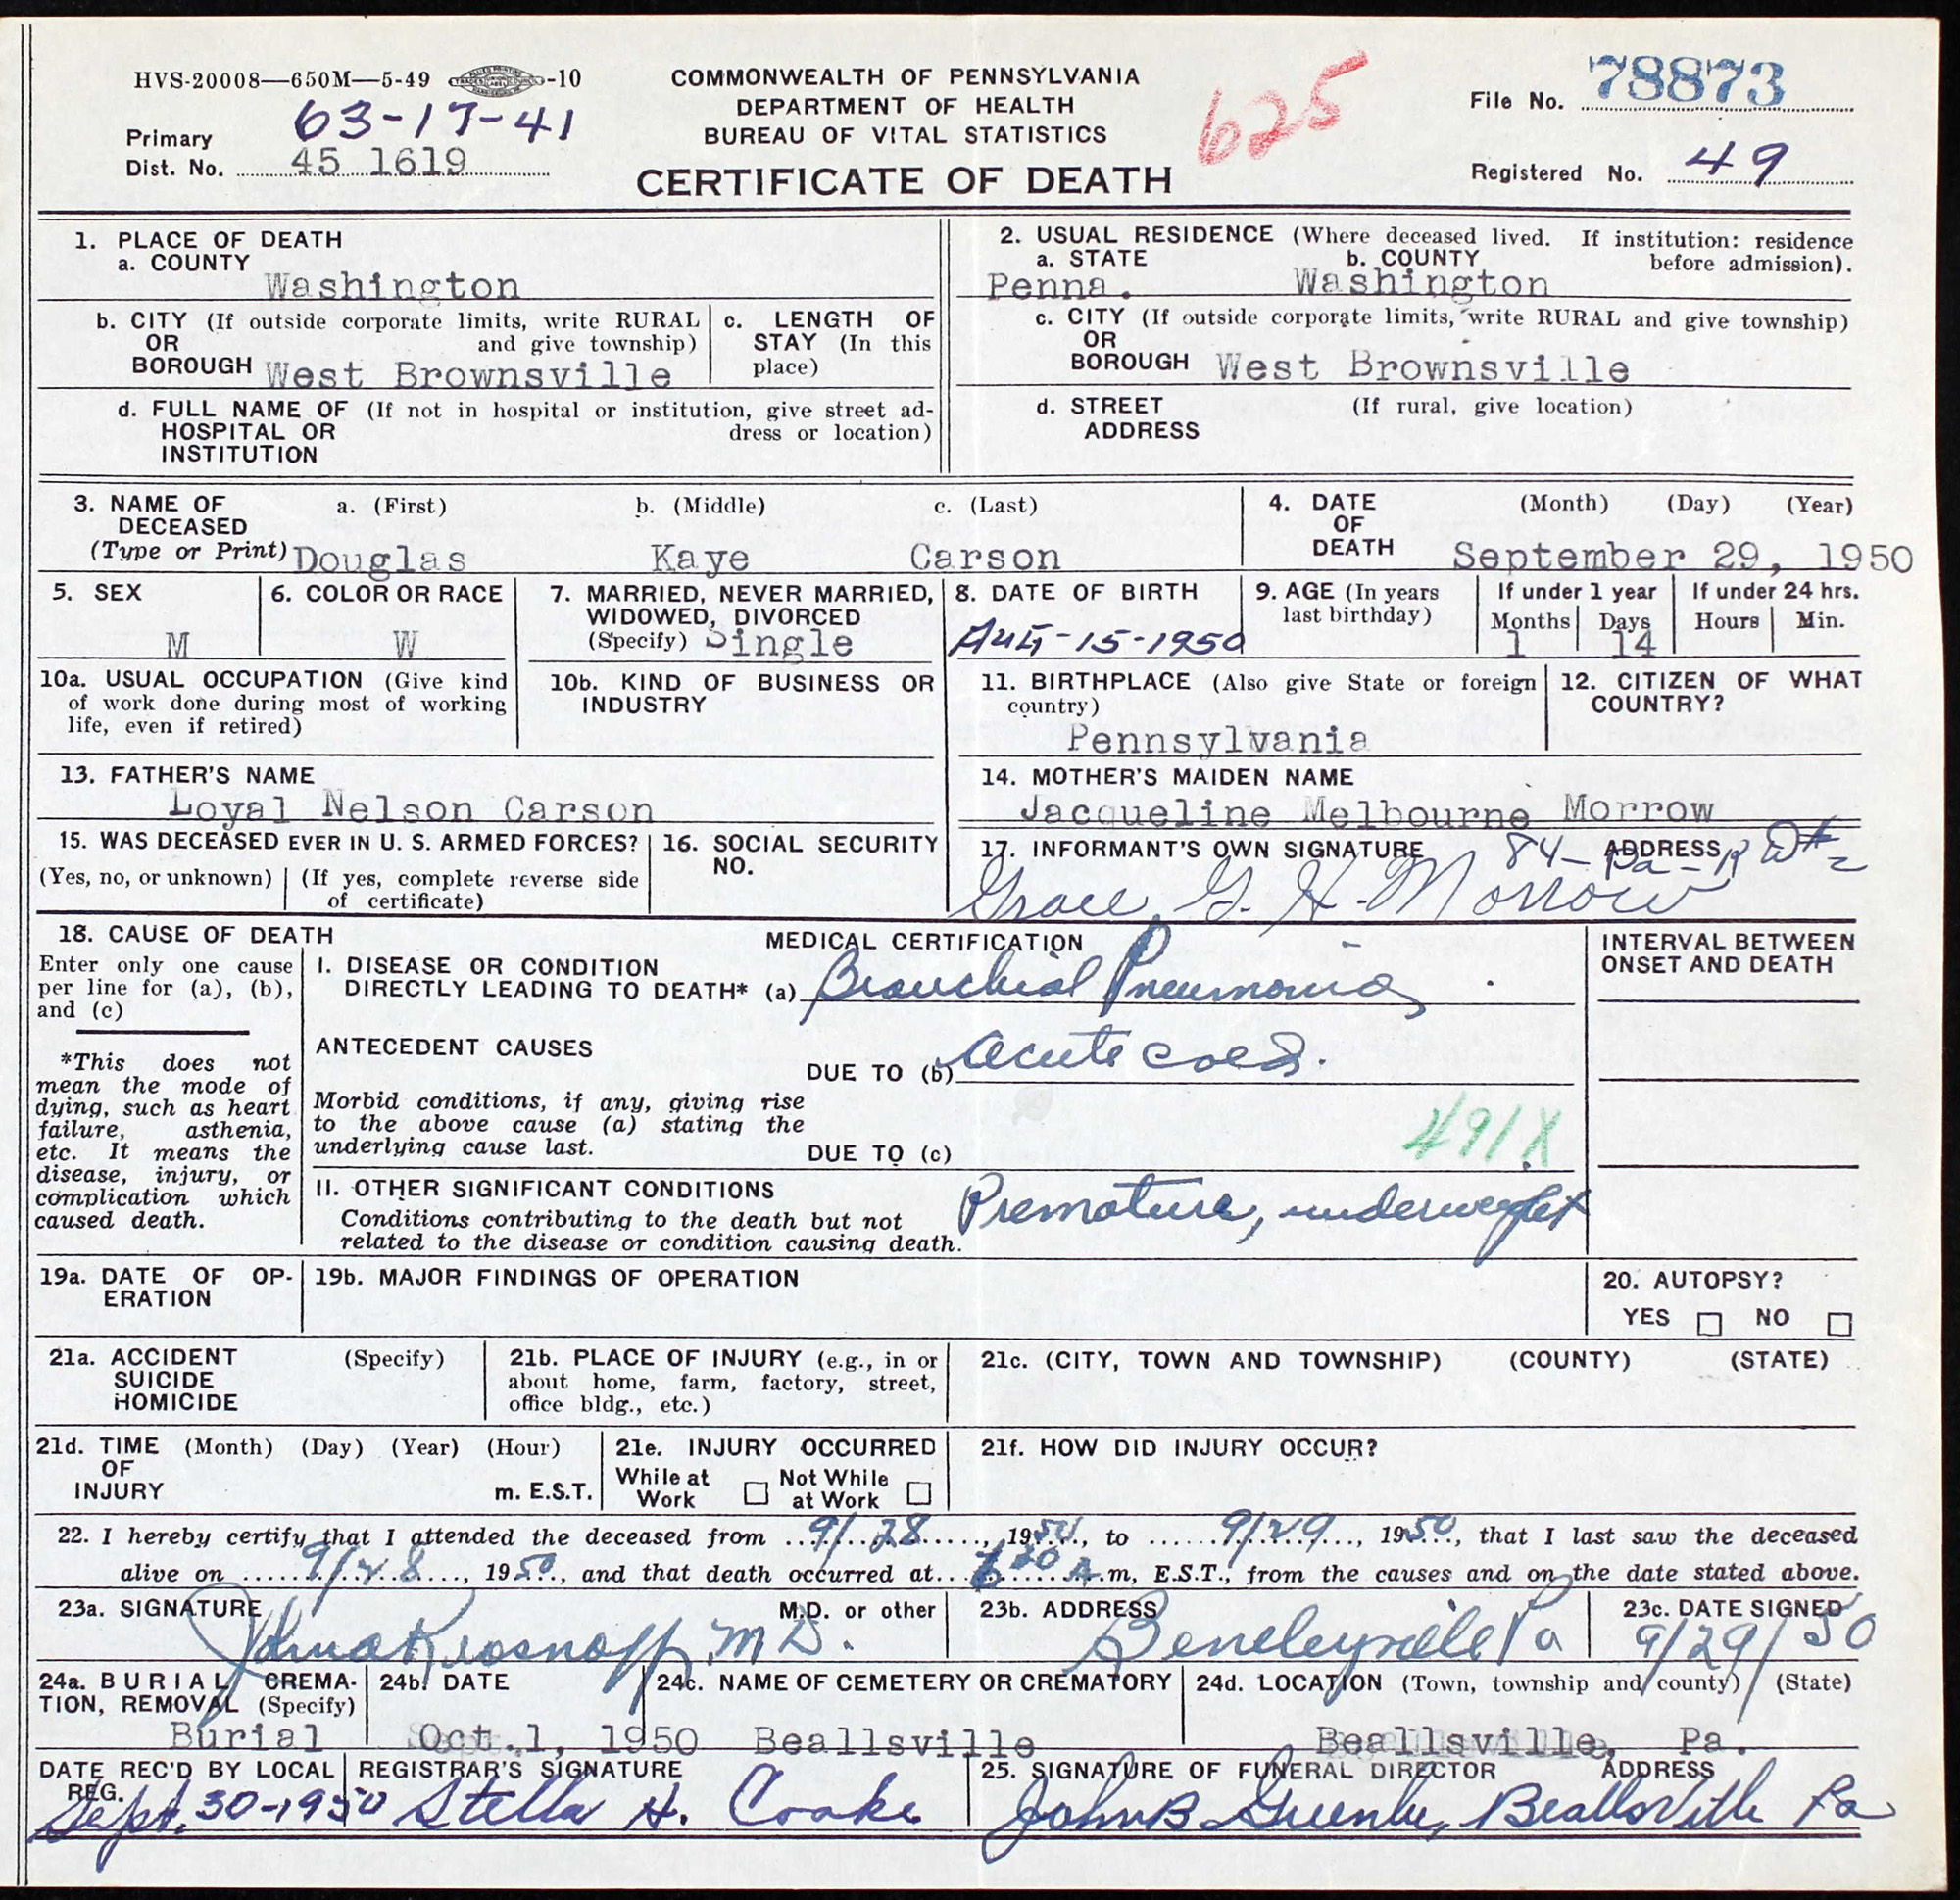 HVS-20008—650M—5-49 -10
63-17-41
Primary
Dist. No. 45 1619
COMMONWEALTH OF PENNSYLVANIA
DEPARTMENT OF HEALTH
BUREAU OF VITAL STATISTICS
CERTIFICATE OF DEATH
625
File No. 78873
Registered No. 49
1. PLACE OF DEATH
a. COUNTY
Washington
b. CITY (If outside corporate limits, write RURAL
OR and give township)
BOROUGH West Brownsville
c. LENGTH OF
STAY (In this
place)
d. FULL NAME OF (If not in hospital or institution, give street ad-
HOSPITAL OR dress or location)
INSTITUTION
2. USUAL RESIDENCE (Where deceased lived. If institution: residence
a. STATE b. COUNTY before admission).
Penna. Washington
c. CITY (If outside corporate limits, write RURAL and give township)
OR
BOROUGH West Brownsville
d. STREET (If rural, give location)
ADDRESS
3. NAME OF a. (First) b. (Middle) c. (Last)
DECEASED
(Type or Print) Douglas Kaye Carson
4. DATE (Month) (Day) (Year)
OF
DEATH September 29, 1950
5. SEX
M
6. COLOR OR RACE
W
7. MARRIED, NEVER MARRIED,
WIDOWED, DIVORCED
(Specify) Single
8. DATE OF BIRTH
Aug-15-1950
9. AGE (In years
last birthday)
If under 1 year
Months Days
1 14
If under 24 hrs.
Hours Min.
10a. USUAL OCCUPATION (Give kind
of work done during most of working
life, even if retired)
10b. KIND OF BUSINESS OR
INDUSTRY
11. BIRTHPLACE (Also give State or foreign
country)
Pennsylvania
12. CITIZEN OF WHAT
COUNTRY?
13. FATHER'S NAME
Loyal Nelson Carson
14. MOTHER'S MAIDEN NAME
Jacqueline Melbourne Morrow
15. WAS DECEASED EVER IN U. S. ARMED FORCES?
(Yes, no, or unknown) (If yes, complete reverse side
of certificate)
16. SOCIAL SECURITY
NO.
17. INFORMANT'S OWN SIGNATURE ADDRESS
84- Pa- R D # 2
Grace. G. H. Morrow
18. CAUSE OF DEATH
Enter only one cause
per line for (a), (b),
and (c)
*This does not
mean the mode of
dying, such as heart
failure, asthenia,
etc. It means the
disease, injury, or
complication which
caused death.
MEDICAL CERTIFICATION
I. DISEASE OR CONDITION
DIRECTLY LEADING TO DEATH* (a) Bronchial Pneumonia
ANTECEDENT CAUSES
DUE TO (b) acute cold.
Morbid conditions, if any, giving rise
to the above cause (a) stating the
underlying cause last.
DUE TO (c)
491X
II. OTHER SIGNIFICANT CONDITIONS
Conditions contributing to the death but not
related to the disease or condition causing death.
Premature, underweight
INTERVAL BETWEEN
ONSET AND DEATH
19a. DATE OF OP-
ERATION
19b. MAJOR FINDINGS OF OPERATION
20. AUTOPSY?
YES NO
21a. ACCIDENT (Specify)
SUICIDE
HOMICIDE
21b. PLACE OF INJURY (e.g., in or
about home, farm, factory, street,
office bldg., etc.)
21c. (CITY, TOWN AND TOWNSHIP) (COUNTY) (STATE)
21d. TIME (Month) (Day) (Year) (Hour)
OF
INJURY m. E.S.T.
21e. INJURY OCCURRED
While at Not While
Work at Work
21f. HOW DID INJURY OCCUR?
22. I hereby certify that I attended the deceased from 9/28, 1950, to 9/29, 1950, that I last saw the deceased
alive on 9/28, 1950, and that death occurred at A.m, E.S.T., from the causes and on the date stated above.
23a. SIGNATURE M.D. or other
John Krosnoff, M D.
23b. ADDRESS
Bentleyville Pa
23c. DATE SIGNED
9/29/50
24a. BURIAL, CREMA-
TION, REMOVAL (Specify)
Burial
24b. DATE
Oct. 1, 1950
24c. NAME OF CEMETERY OR CREMATORY
Beallsville
24d. LOCATION (Town, township and county) (State)
Beallsville, Pa.
DATE REC'D BY LOCAL
REG.
Sept. 30-1950
REGISTRAR'S SIGNATURE
Stella H. Cooke
25. SIGNATURE OF FUNERAL DIRECTOR ADDRESS
John B Greenlee, Beallsville Pa